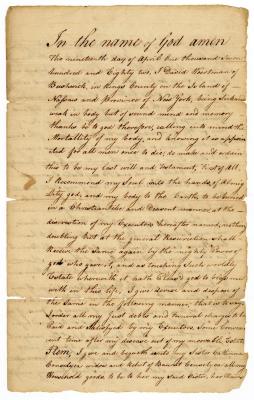 In the name of God amen
The nineteenth day of April One thousand Seven
hundred and Eighty two, I David Boorkman of
Bushwick, in Kings County on the Island of
Nassau and Province of New York, being Sick and
weak in body but of sound mind and memory
thanks be to god therefore, calling unto mind the
Mortallity of my body, and knowing it is appoin
ted for all men once to die; do make and ordain
this to be my last will and testament, First of All
I Recommend my Soul into the hands of Almig
hty god, and my body to the Earth, to be buried
in a Christianlike and Descent manner at the
discretion of my Executors hereafter named, nothing
doubting but at the general Resurection shall I
Receive the Same again by the mighty Power of
god who gave it, and as touching Such worldly
Estate wherewith it hath Pleas'd god to bless me
with in this life, I give devise and dispose of
the Same in the following manner, that is to say
I order all my just debts and funeral charges to be
Paid and Satisfied by my Executors, Some Conveni
ent time after my decease out of my moveable Estate
Item, I give and bequeath unto my Sister Catharine
widow and Relict of all my
Household goods to be to her my Said Sister, her Heirs